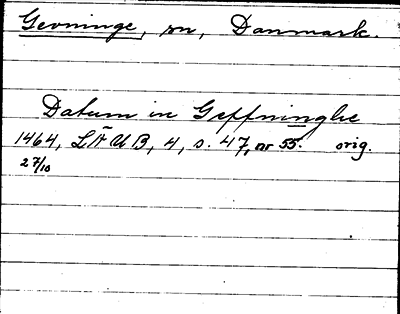 Gevninge, sn, Danmark.
Datum in Geffninghe
1464, LÄUB, 4, s. 47, nr 55. orig.
27/10